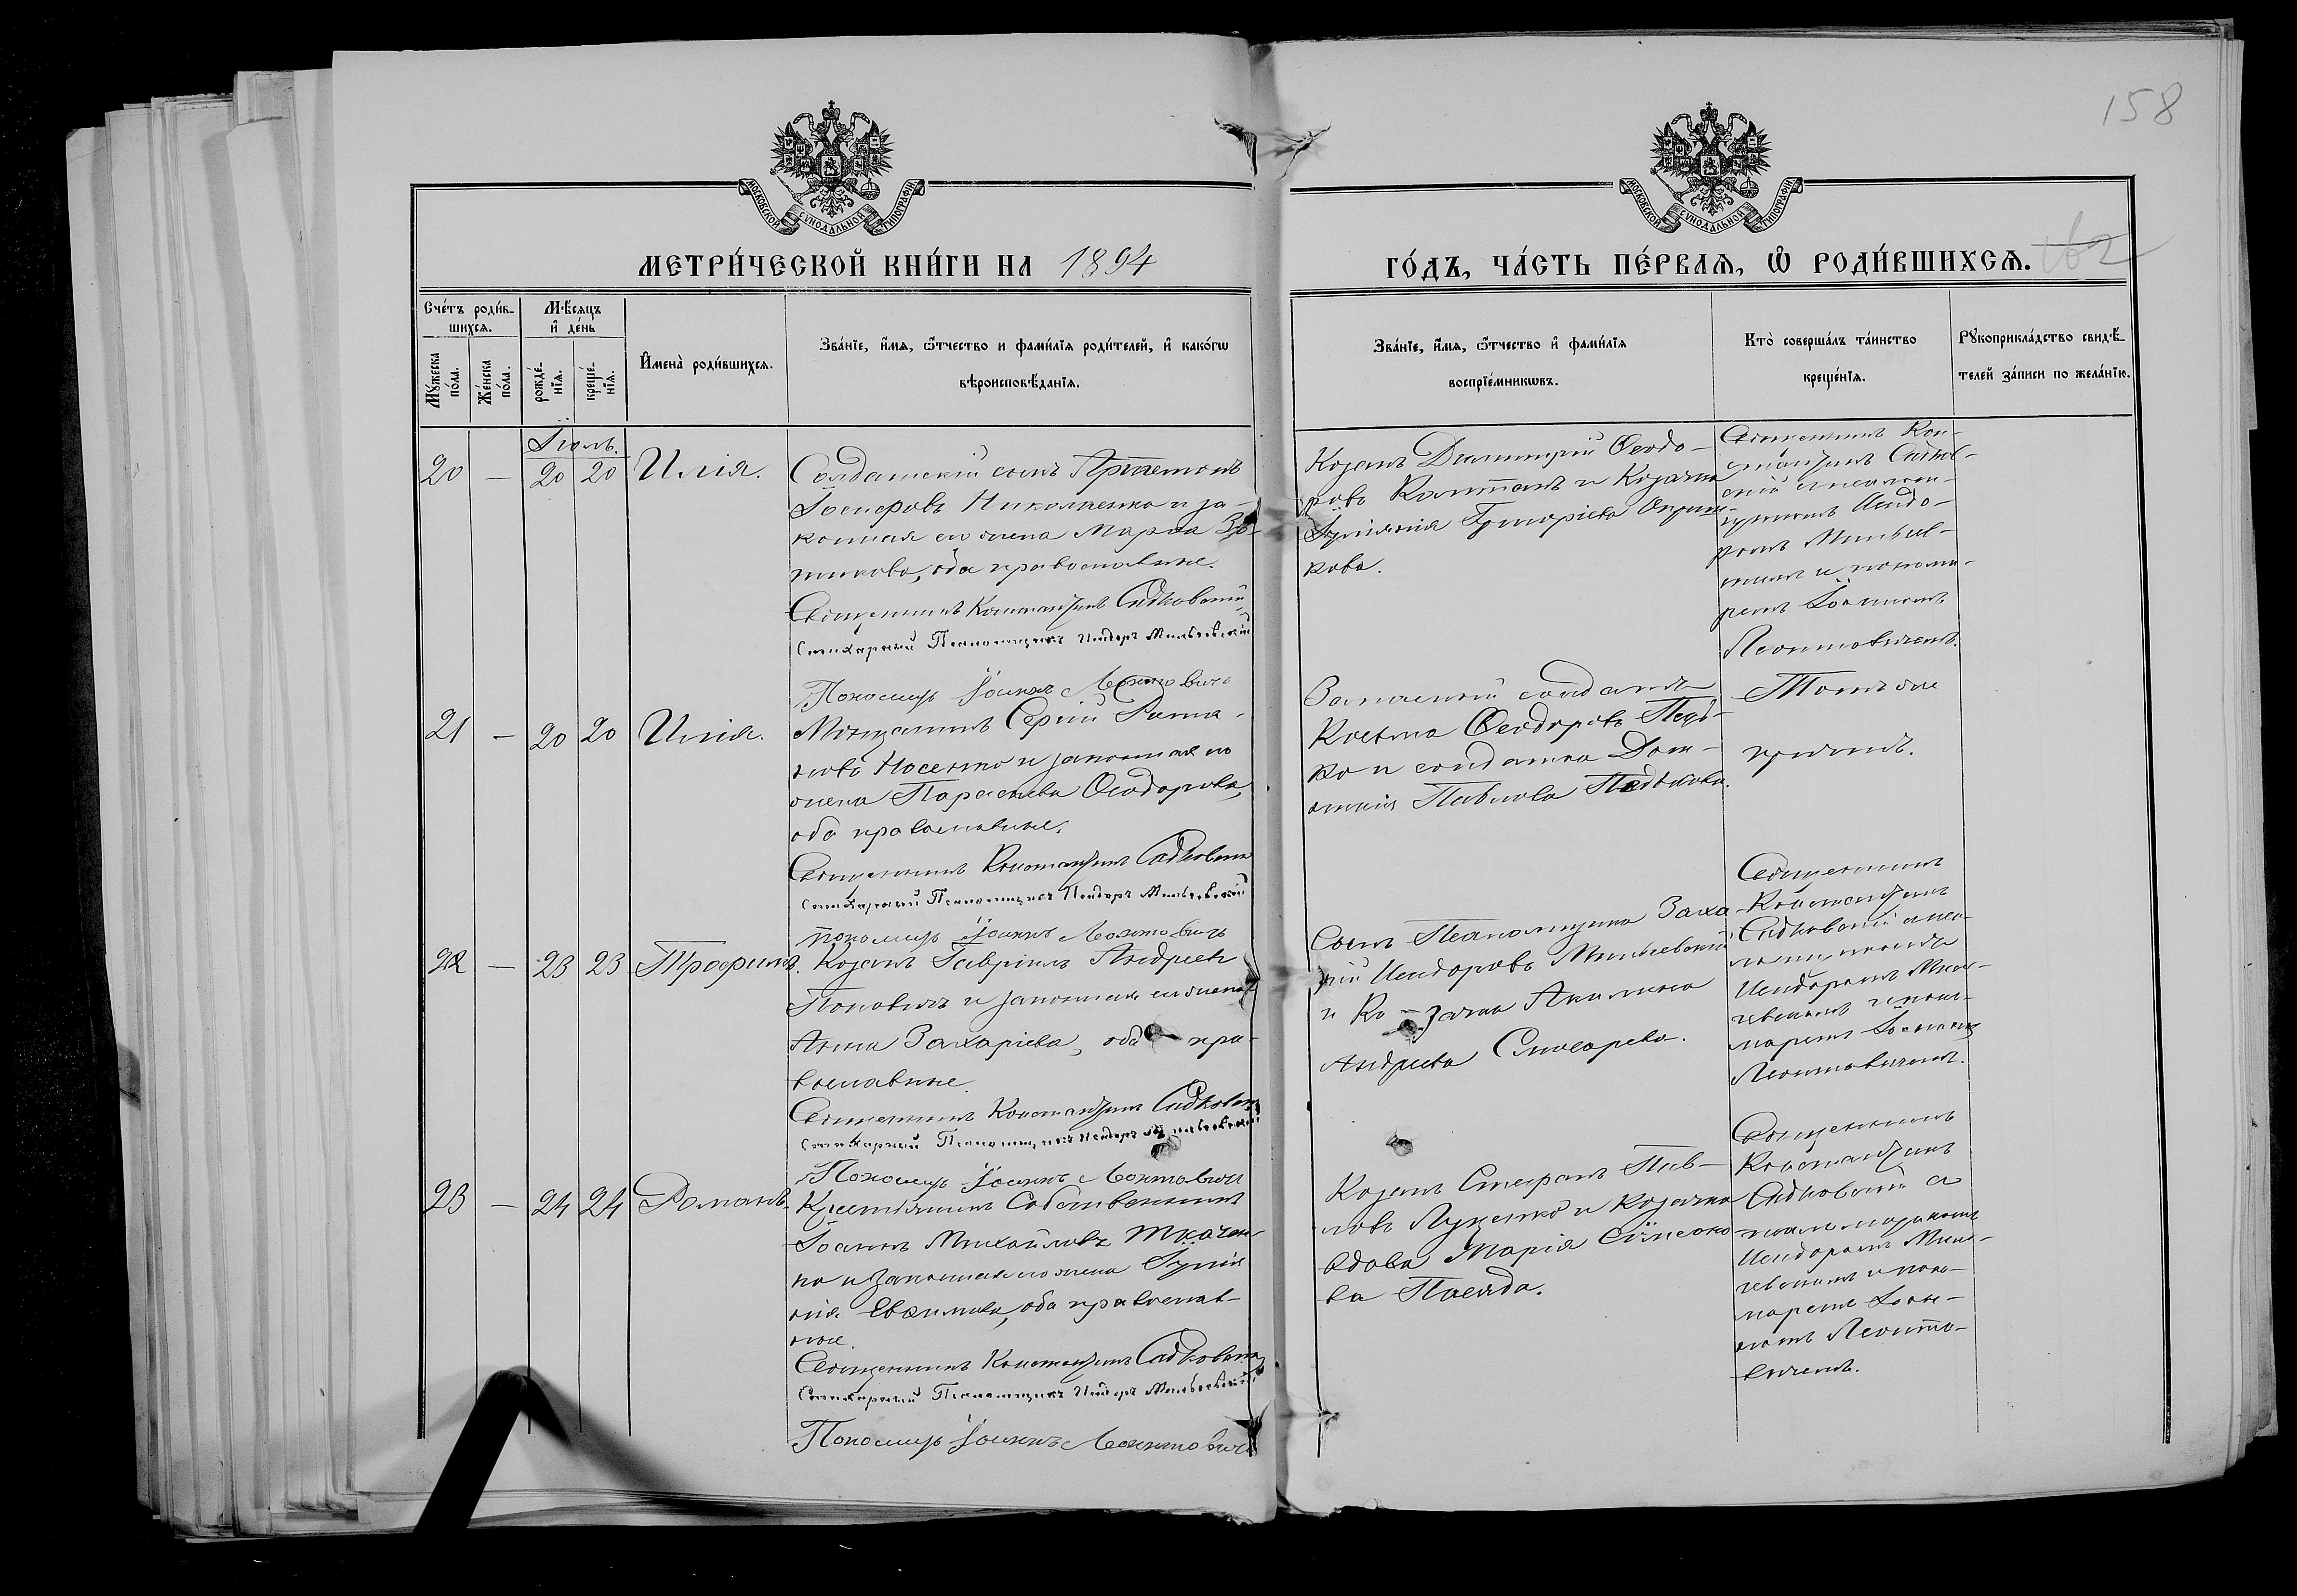 158
МОСКОВСКОЙ СѴНОДАЛЬНОЙ ТИПОГРАФІИ
МОСКОВСКОЙ СѴНОДАЛЬНОЙ ТИПОГРАФІИ
МЕТРИ́ЧЕСКОЙ КНИ́ГИ НА 1894
ГО́ДЪ, ЧА́СТЬ ПЕ́РВАѦ, Ѽ РОДИ́ВШИХСѦ.
162
Сче́тъ роди́в-
шихсѧ.
Мꙋ́жеска по́ла.
Же́нска по́ла.
Мѣ́сѧцъ
и҆ де́нь
рожде́-
нїѧ.
креще́-
нїѧ.
И҆мена̀ роди́вшихсѧ.
Зва́нїе, и҆́мѧ, ѻ҆́тчество и фами́лїѧ роди́телей, и҆ како́гѡ
вѣроисповѣ́данїѧ.
Зва́нїе, и҆́мѧ, ѻ҆́тчество и҆ фами́лїѧ
воспрїе́мникѡвъ.
Кто̀ соверша́лъ та́инство
креще́нїѧ.
Рꙋкоприкла́дство свидѣ́-
телей за́писи по жела́нїю.
Іюль.
20 — 20 20 Илія.
Солдатскій сынъ Артемонъ
Іосифовъ Николаенко и за-
конная его жена Марѳа
оба православные.
Священникъ Константинъ Садковскій
Стихарный Псаломщикъ Исидоръ Мильевскій
Пономарь Іоаннъ Леонтовичъ
Козакъ Димитрій Ѳеодо-
ровъ Калтанъ и Козачка
Григоріева
кова.
Священникъ Кон-
стантинъ Садков-
скій съ псалом-
щикомъ Исидо-
ромъ Мильев-
скимъ и понома-
ремъ Іоанномъ
Леонтовичемъ.
21 — 20 20 Илія.
Мѣщанинъ Сергій Рома-
новъ Носенко и законная его
жена Параскева Ѳеодорова,
оба православные.
Священникъ Константинъ Садковскій
Стихарный Псаломщикъ Исидоръ Мильевскій
Пономарь Іоаннъ Леонтовичъ
Запасный солдатъ
Косьма Ѳеодоровъ Педь-
ко и солдатка Дом-
Павлова Педькова.
Тотъ же
причтъ.
22 — 23 23 Трофимъ.
Козакъ Гавріилъ Андреевъ
Поповичъ и законная его жена
Анна Захаріева, оба пра-
вославные.
Священникъ Константинъ Садковскій
Стихарный Псаломщикъ Исидоръ Мильевскій
Пономарь Іоаннъ Леонтовичъ
Сынъ Псаломщика Заха-
рій Исидоровъ Мильевскій
и Ко-зачка Акилина
Андреева Слюсарева.
Священникъ
Константинъ
Садковскій съ пса-
ломщикомъ
Исидоромъ Миль-
евскимъ и поно-
маремъ Іоанномъ
Леонтовичемъ.
23 — 24 24 Романъ.
Крестьянинъ Собственникъ
Іоаннъ Михайловъ Ткачен-
ко и законная его жена
Евѳимова, оба православ-
ные.
Священникъ Константинъ Садковскій
Стихарный Псаломщикъ Исидоръ Мильевскій
Пономарь Іоаннъ Леонтовичъ
Козакъ Стефанъ Пав-
ловъ Луценко и Козачка
вдова Марія Сѷмеоно-
ва Паляда.
Священникъ
Константинъ
Садковскій съ
псаломщикомъ
Исидоромъ Миль-
евскимъ и поно-
маремъ Іоан-
номъ Леонто-
вичемъ.